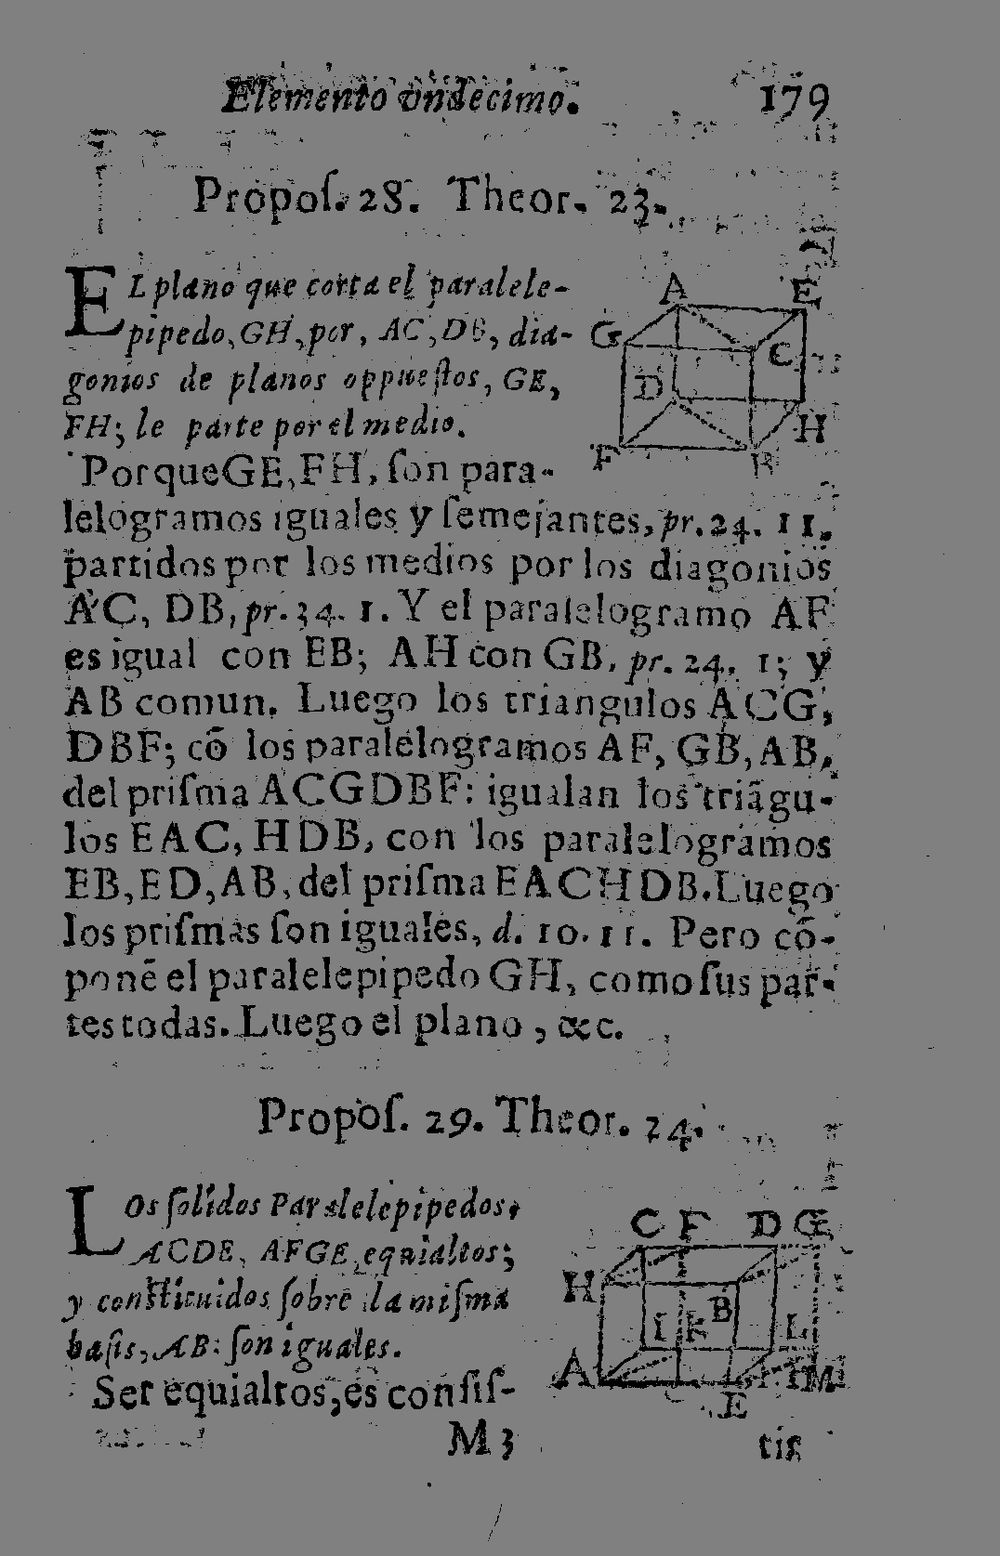 Elemento vndecimo. 179
Propoſ. 28. Theor. 23.
EL plano que corta el paralele-
pipedo, GH, por, AC, DB, dia-
gonios de planos oppueſtos, GE,
FH; le parte por el medio.
Porque GE, FH, ſon para-
lelogramos iguales y ſemejantes, pr. 24. 11.
partidos por los medios por los diagonios
AC, DB, pr. 34. 1. Y el paralelogramo AF
es igual con EB; AH con GB, pr. 24. 1; y
AB comun. Luego los triangulos ACG,
DBF; cõ los paralelogramos AF, GB, AB,
del priſma ACGDBF: igualan los triãgu-
los EAC, HDB, con los paralelogramos
EB, ED, AB, del priſma EACHDB. Luego
los priſmas ſon iguales, d. 10. 11. Pero cõ-
ponẽ el paralelepipedo GH, como ſus par-
tes todas. Luego el plano, &c.
A E
G C
D
H
F B
Propoſ. 29. Theor. 24.
LOs ſolidos Paralelepipedos,
ACDE, AFGE, equialtos;
y conſtituidos ſobre la miſma
baſis, AB: ſon iguales.
Ser equialtos, es conſiſ-
C F D G
H B
I K L
A M
E
M 3 tir